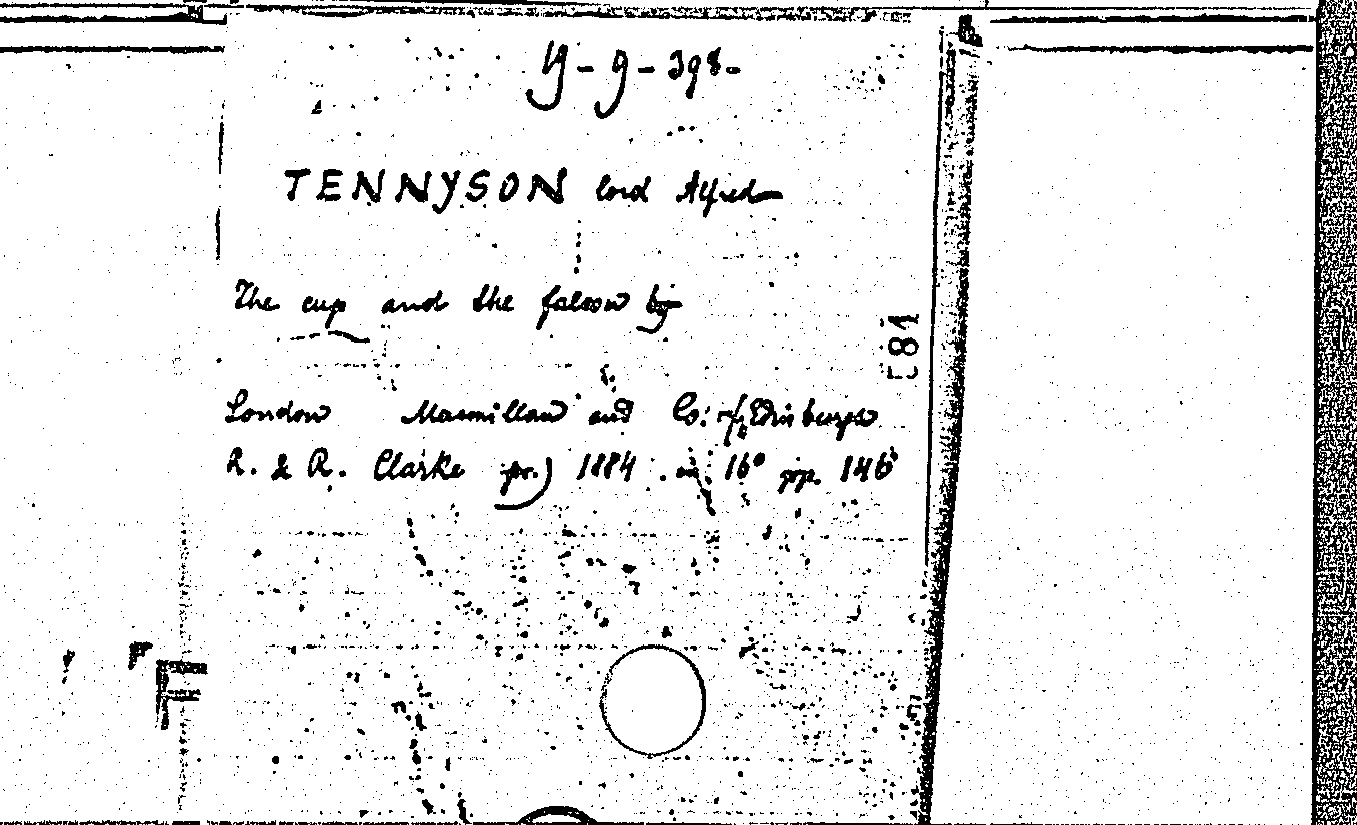 y-g-398-
TENNYSON lord Alfred
The cup and the falcon by
London Macmillan and Co:
R. & R. Clarke pr.) 1884. in 16° pp. 146